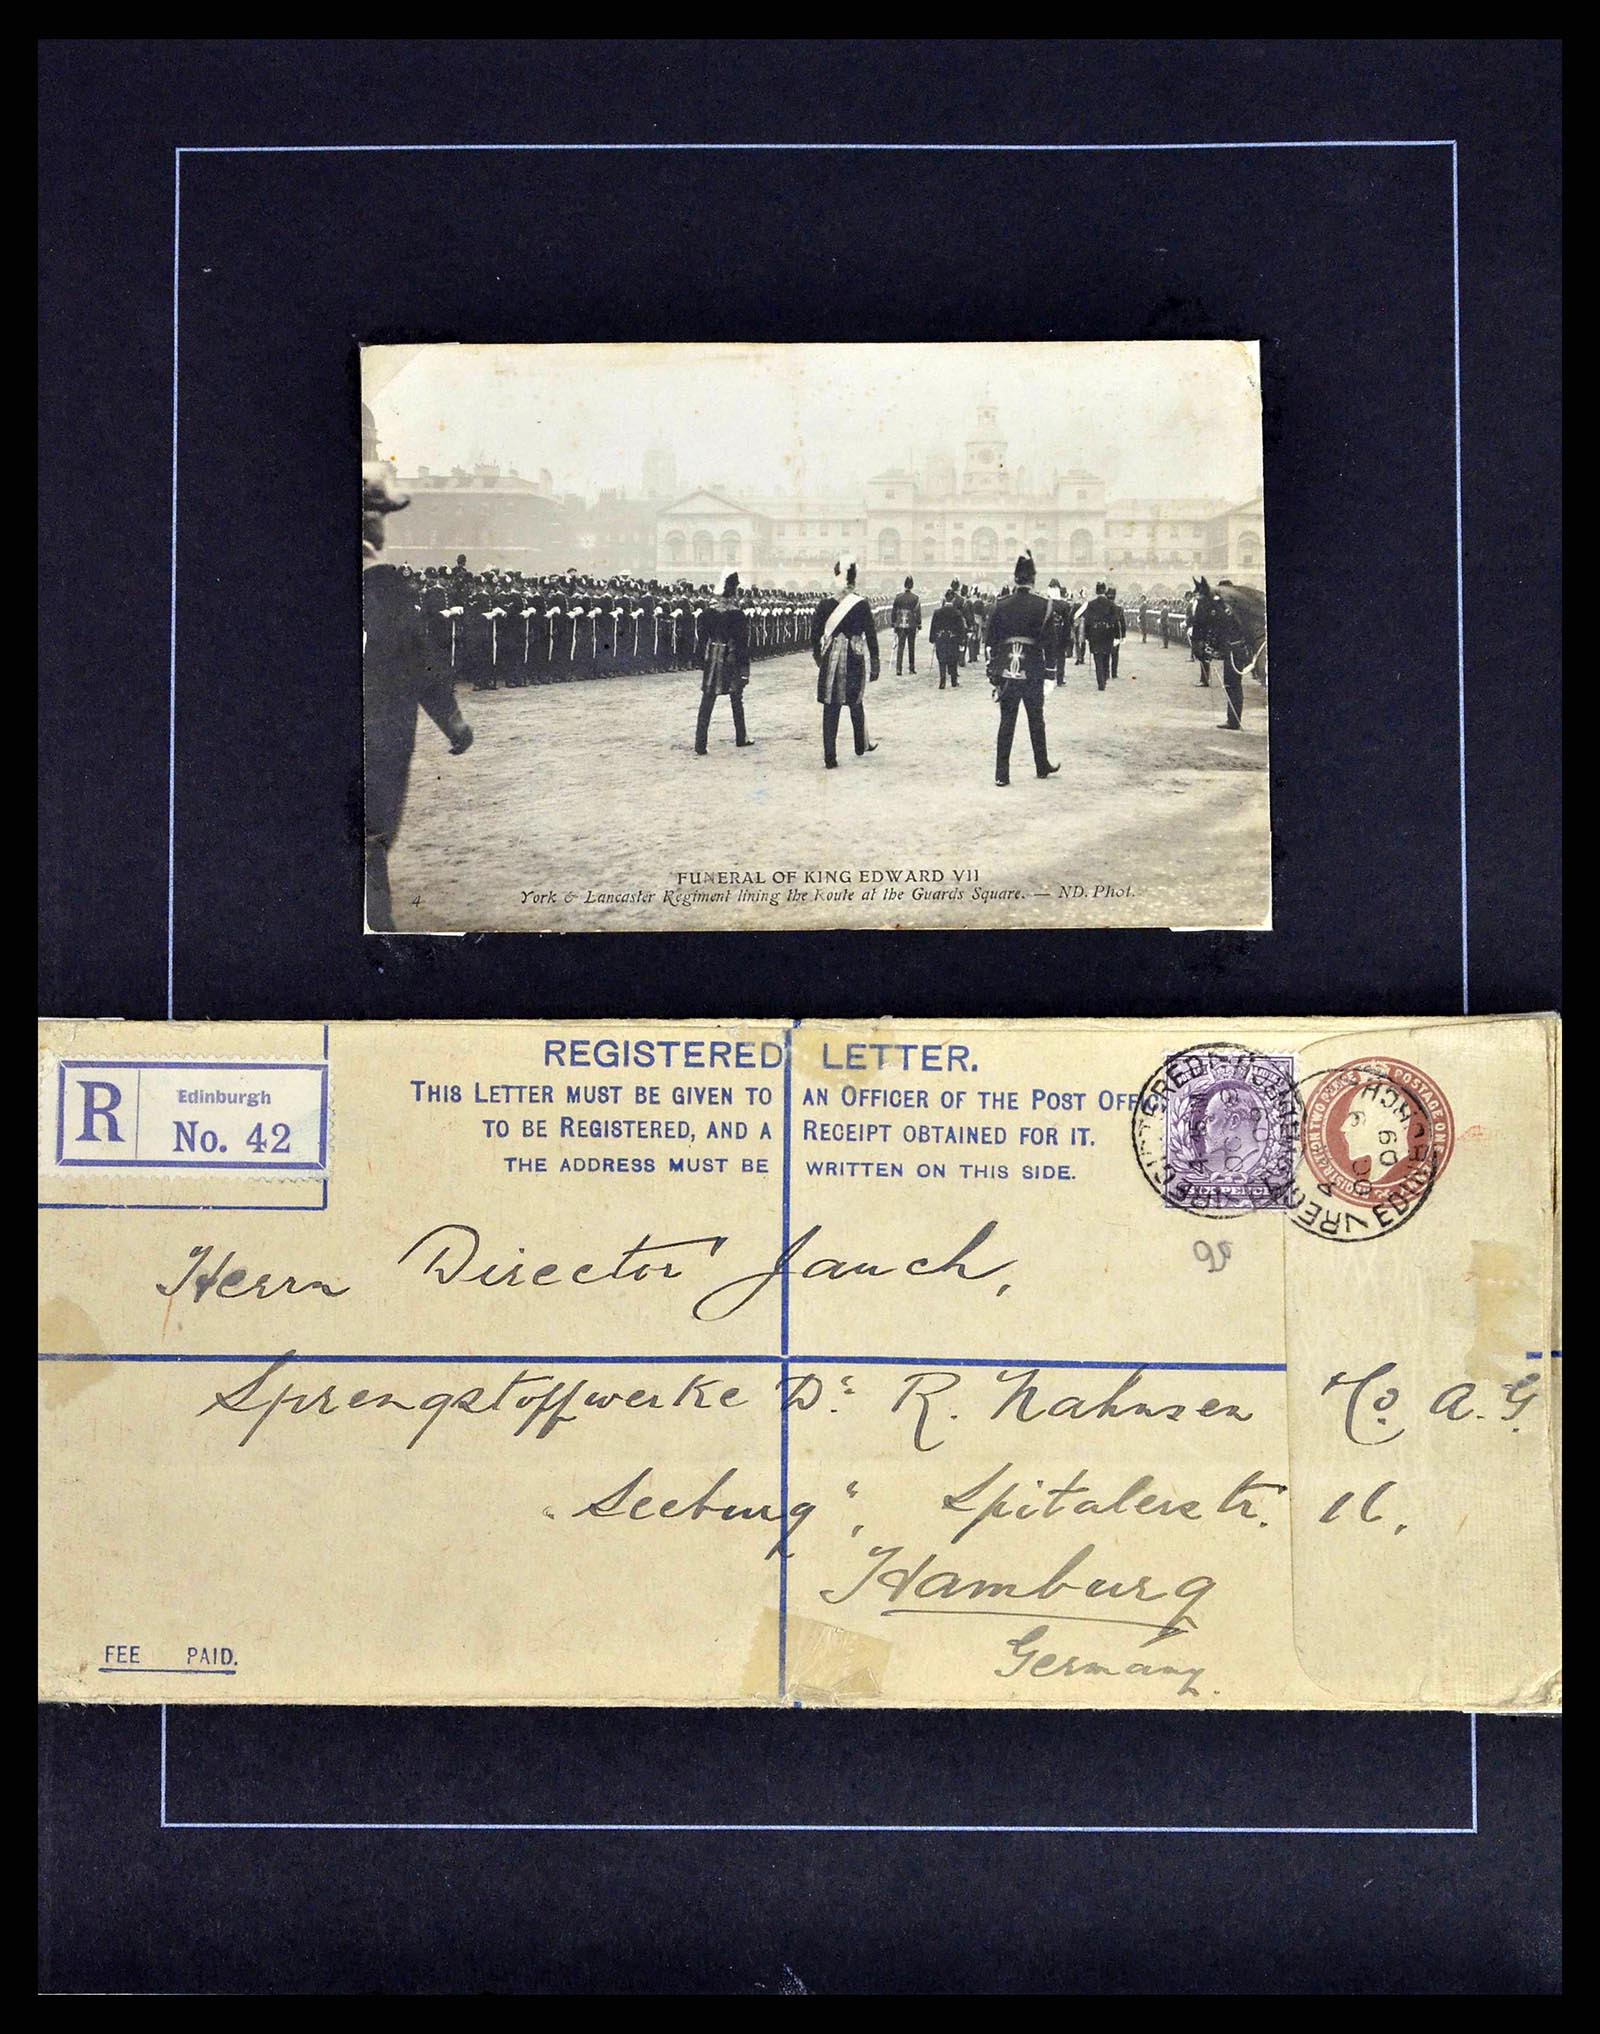 FUNERAL OF KING EDWARD VII
4 York & Lancaster Regiment lining the Route at the Guards Square. — ND. Phot.
REGISTERED LETTER.
THIS LETTER MUST BE GIVEN TO AN OFFICER OF THE POST OFF
TO BE REGISTERED, AND A RECEIPT OBTAINED FOR IT.
THE ADDRESS MUST BE WRITTEN ON THIS SIDE.
R Edinburgh
No. 42
REGISTERED
EDINBURGH
POSTAGE ONE
Herrn Director Jauch,
Sprengstoffwerke Dr. R. Nahnsen & Co. A. G.
"Seeburg", Spitalerstr. 16.
Hamburg
Germany.
FEE PAID.